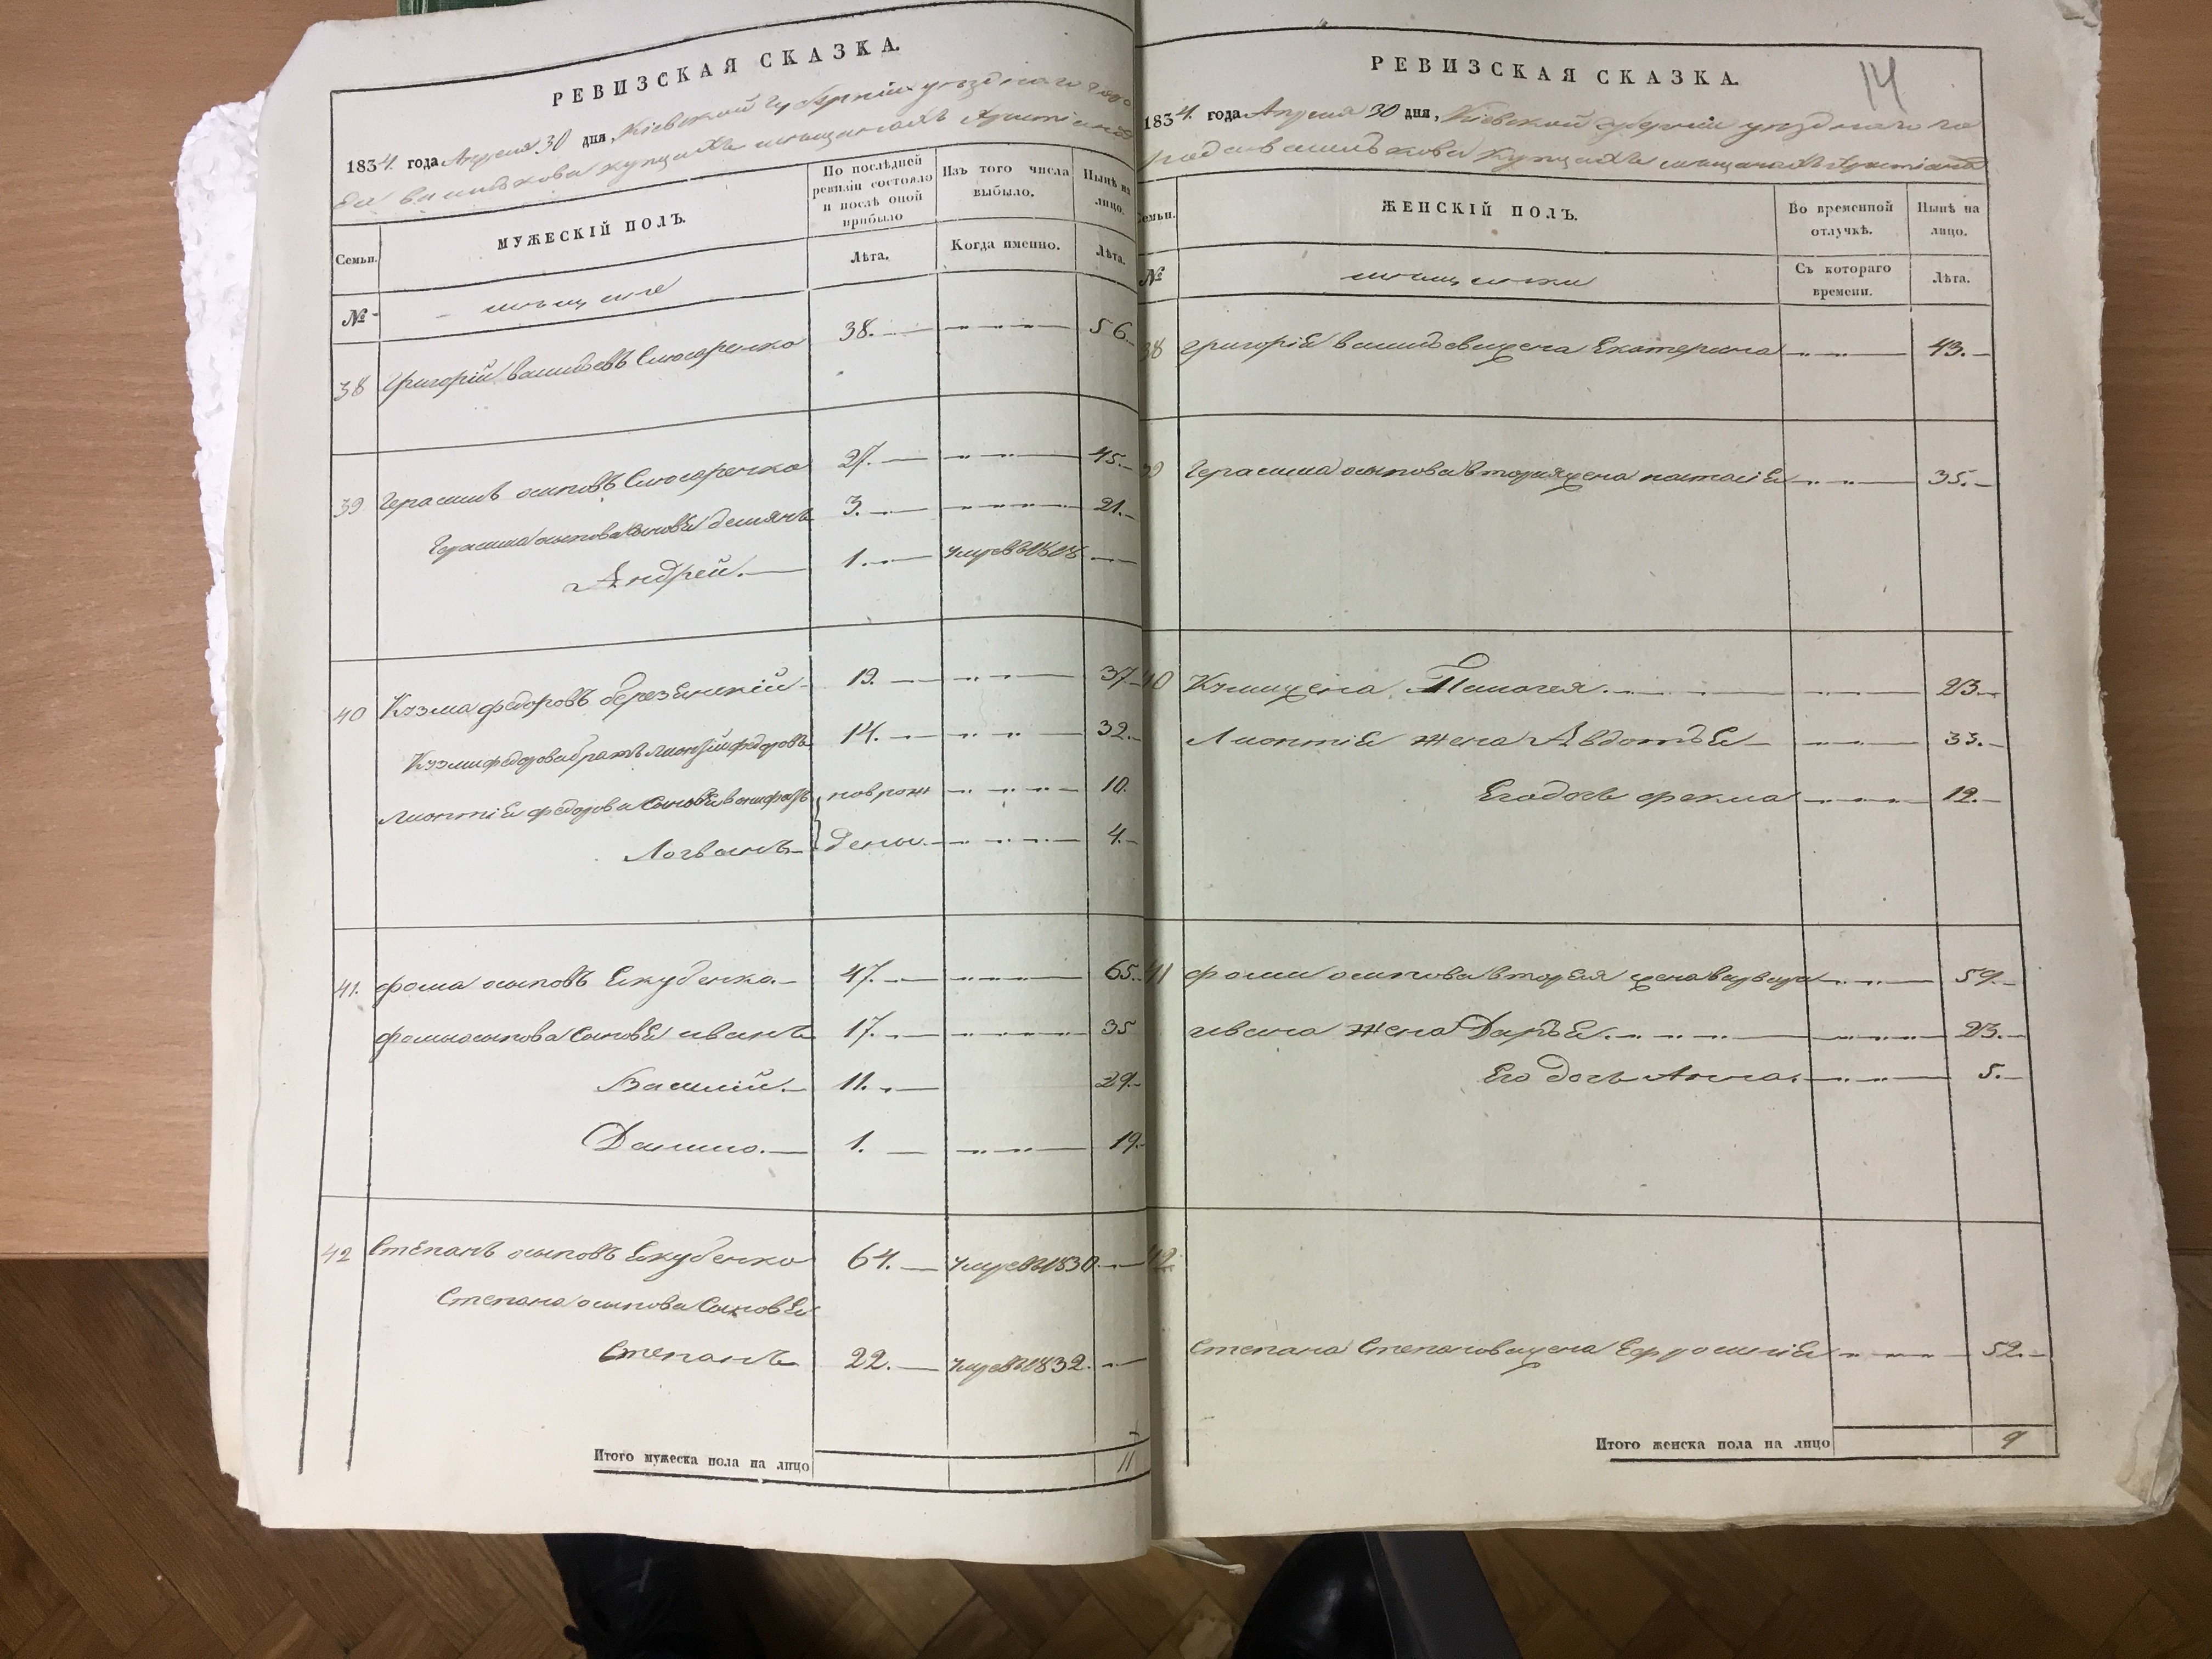 РЕВИЗСКАЯ СКАЗКА.
1834. года Апреля 30 дня, Кіевской губерніи уезднаго горо
да василькова купцахъ мещанахъ христіанах
Семьи.
МУЖЕСКІЙ ПОЛЪ.
По последней ревизіи состояло и после оной прибыло
Изъ того числа выбыло.
Ныне на лицо.
Лета.
Когда именно.
Лета.
№
мещане
38 Григорій васильевъ Слюсаренко 38. 56.
39 Герасимъ осиповъ Слюсаренко 27. 45.
Герасима осипова сыновья демянъ 3. 21.
Андрей. 1. умре въ 1818
40 Кузма федоровъ березинскій 19. 37
Кузмы федорова братъ Лионтій федоровъ 14. 32.
Лионтія федорова сыновья вонифатъ новрож 10.
Логвинъ дены. 4.
41. фома осиповъ Якубенко 47. 65.
фомы осипова сыновья иванъ 17. 35
Василій. 11. 29.
Данило. 1. 19.
42 Степанъ осиповъ Якубенко 64. умре въ 1830.
Степана осипова сыновья
Степанъ 22. умре въ 1832.
Итого мужеска пола на лицо 11
14
РЕВИЗСКАЯ СКАЗКА.
1834. года Апреля 30 дня, Кіевской губерніи уезднаго го
рода василькова купцахъ мещанахъ христіанах
Семьи.
ЖЕНСКІЙ ПОЛЪ.
Во временной отлучкѣ.
Нынѣ на лицо.
№
мещанки
Съ котораго времени.
Лѣта.
38 григорія васильева жена Екатерина 43.
39 Герасима осипова вторая жена настасія 35.
40 Кузмы жена Пелагея. 23.
Лионтія жена Авдотья 33.
Его дочь фекла 12.
41 фомы осипова вторая жена 59.
ивана жена Дарья. 23.
Его дочь Анна. 5.
42
Степана Степанова жена Ефросинія 52.
Итого женска пола на лицо 9